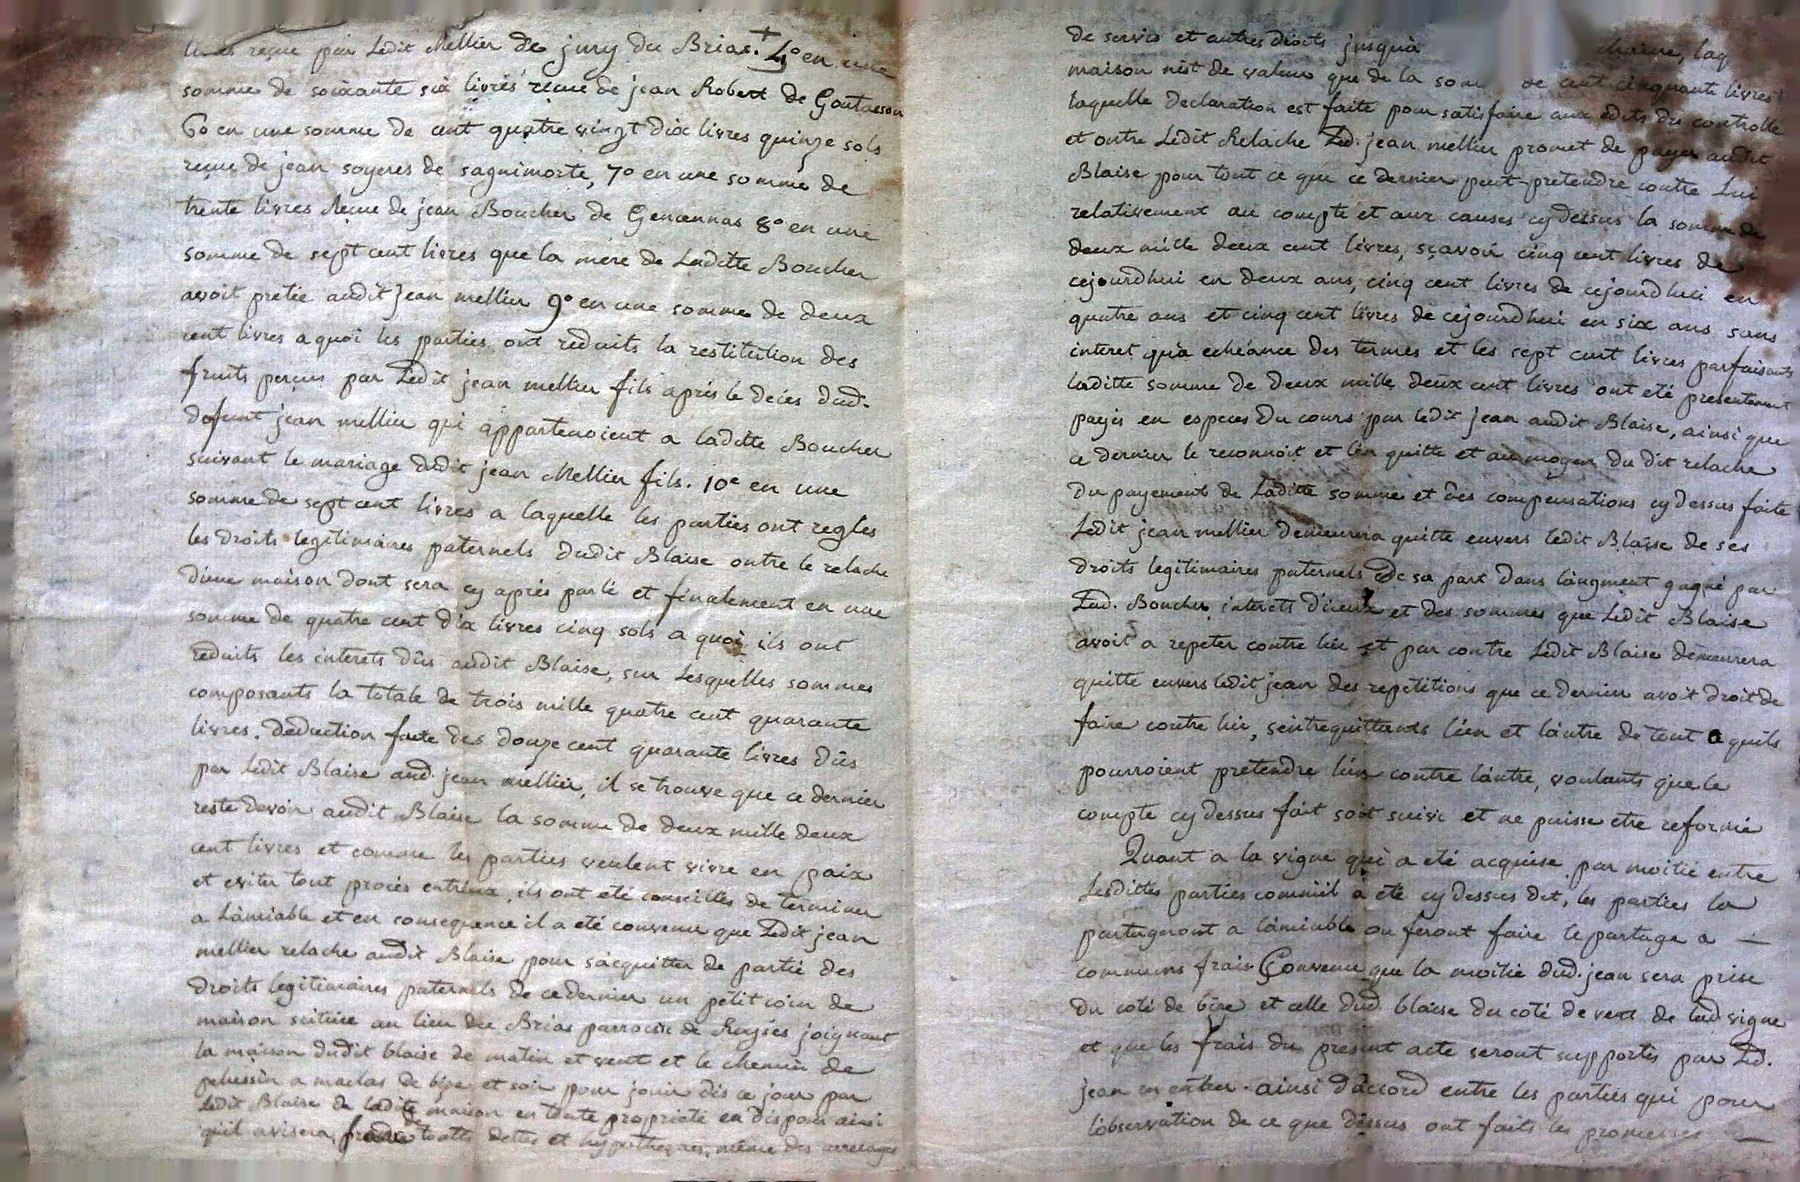 reçue par Ledit Mellier de jury du Brias. + 4o en une
somme de soixante six livres reçue de jean Robert de Gontasson
6o en une somme de cent quatre vingt dix livres quinze sols
reçue de jean soyeres de sagnimorte, 7o en une somme de
trente livres Reçue de jean Boucher de Gencennas 8o en une
somme de sept cent livres que la mere de Laditte Boucher
avoit pretée audit jean mellier 9o en une somme de deux
cent livres a quoi les parties ont reduits la restitution des
fruits perçus par Ledit jean mellier fils après le deces dud.
defunt jean mellier qui appartenoient a laditte Boucher
suivant le mariage dudit jean Mellier fils. 10e en une
somme de sept cent livres a laquelle les parties ont regles
les droits legitimaires paternels dudit Blaise outre le relache
d'une maison dont sera cy après parlé et finalement en une
somme de quatre cent dix livres cinq sols a quoi ils ont
reduits les interets dûs audit Blaise, sur Lesquelles sommes
composants la totale de trois mille quatre cent quarante
livres. deduction faite des douze cent quarante livres dûs
par Ledit Blaise aud. jean mellier, il se trouve que ce dernier
reste devoir audit Blaise la somme de deux mille deux
cent livres et comme les parties veulent vivre en paix
et eviter tout procès entreux, ils ont eté conseilles de terminer
a Lâmiable et en consequence il a eté convenu que Ledit jean
mellier relache audit Blaise pour sácquitter de partie des
droits legitimaires paternels de ce dernier un petit coin de
maison scituée au lieu du Brias parroisse de Ruysés joignant
la maison dudit blaise de matin et vent et le chemin de
pelussin a maclas de bize et soir pour jouir dès ce jour par
Ledit Blaise de ladite maison en toute propriété en disposer ainsi
qu'il avisera, franche de toutes dettes et hypotheques, même des arrerages
de servis et autres droits jusquà laq
maison nést de valeur que de la somme de cent cinquante livres
laquelle declaration est faite pour satisfaire aux edits du controlle
et outre Ledit Relache Led. jean mellier promet de payer audit
Blaise pour tout ce que ce dernier peut pretendre contre Lui
relativement au compte et aux causes cy dessus la somme de
deux mille deux cent livres, sçavoir cinq cent livres de
cejourdhui en deux ans, cinq cent livres de cejourdhui en
quatre ans et cinq cent livres de cejourdhui en six ans sans
interet quà echéance des termes et les sept cent livres parfaisants
laditte somme de deux mille deux cent livres ont eté presentement
payés en especes du cours par ledit jean audit Blaise, ainsi que
ce dernier le reconnoit et lén quitte et au moyen du dit relache
du payement de Laditte somme et des compensations cy dessus faite
Ledit jean mellier demeurera quitte envers ledit Blaise de ses
droits legitimaires paternels de sa part dans láugment gagné par
Lad. Boucher interets d'iceux et des sommes que Ledit Blaise
avoit a repeter contre lui et par contre Ledit Blaise demeurera
quitte envers ledit jean des repetitions que ce dernier avoit droit de
faire contre lui, séntrequittants lún et láutre de tout ce quils
pourroient pretendre lún contre láutre, voulants que le
compte cy dessus fait soit suivi et ne puisse etre reformé
Quant a la vigne qui a eté acquise par moitié entre
Lesdittes parties commíl a eté cy dessus dit, les parties la
partageront a lámiable ou feront faire le partage a —
communs frais Convenu que la moitié dud. jean sera prise
du coté de bize et celle dud. blaise du coté de vent de lad vigne
et que les frais du present acte seront supportés par Led.
jean en entier. ainsi dáccord entre les parties qui pour
lobservation de ce que dessus ont faits les promesses —